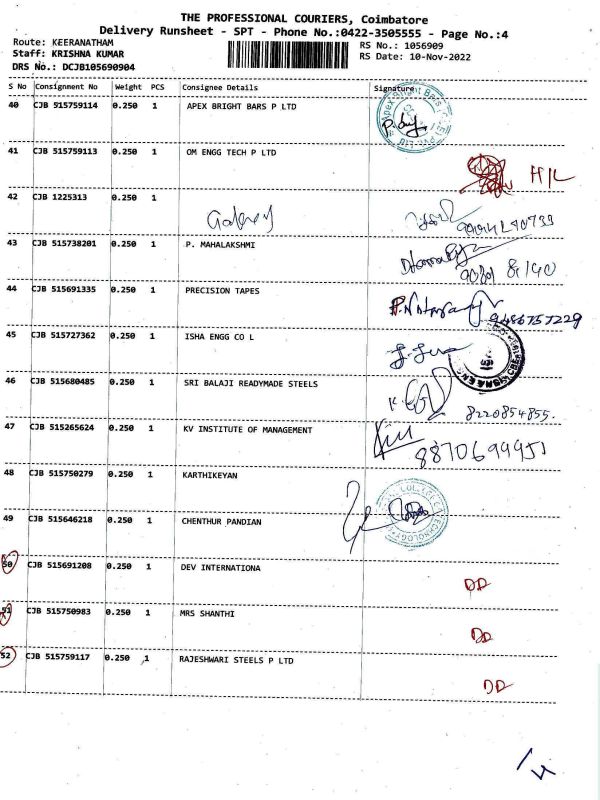 THE PROFESSIONAL COURIERS, Coimbatore
Delivery Runsheet - SPT - Phone No.:0422-3505555 - Page No.:4
Route: KEERANATHAM
RS No.: 1056909
Staff: KRISHNA KUMAR
RS Date: 10-Nov-2022
DRS No.: DCJB105690904
S No Consignment No Weight PCS Consignee Details Signature
40 CJB 515759114 0.250 1 APEX BRIGHT BARS P LTD
41 CJB 515759113 0.250 1 OM ENGG TECH P LTD H/L
42 CJB 1225313 0.250 1
43 CJB 515738201 0.250 1 P. MAHALAKSHMI
44 CJB 515691335 0.250 1 PRECISION TAPES 9486757229
45 CJB 515727362 0.250 1 ISHA ENGG CO L
46 CJB 515680485 0.250 1 SRI BALAJI READYMADE STEELS 8220854855.
47 CJB 515265624 0.250 1 KV INSTITUTE OF MANAGEMENT 8870699951
48 CJB 515750279 0.250 1 KARTHIKEYAN
49 CJB 515646218 0.250 1 CHENTHUR PANDIAN
50 CJB 515691208 0.250 1 DEV INTERNATIONA DD
51 CJB 515750983 0.250 1 MRS SHANTHI DD
52 CJB 515759117 0.250 1 RAJESHWARI STEELS P LTD DD